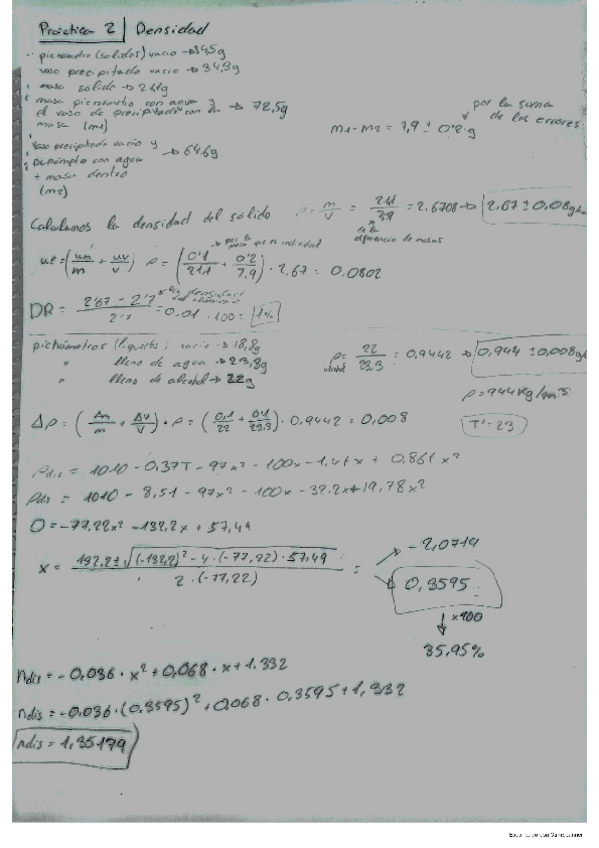 Práctica 2 | Densidad
picnómetro (solidos) vacio → 34,5g
vaso precipitado vacio → 34,3g
masa sólido → 21,1g
masa picnómetro con agua y → 72,5g
el vaso de precipitado con la
masa (m1)
por la suma
de los errores
m1-m2 = 7,9 ± 0'2 g
vaso precipitado vacio y
picnómetro con agua → 64,6g
+ masa dentro
(m2)
Calculamos la densidad del sólido ρ = m/v = 21,1/7,9 = 2,6708 → 2,67 ± 0,08 g/
de la
diferencia de masas
por la
masa que es individual
uρ = (um/m + uv/v) ρ = (0'1/21,1 + 0'2/7,9) · 2,67 = 0,0802
DR = 2'67 - 2'7 / 2'7 = 0,01 · 100 = 1%
picnómetros (líquidos) vacio → 18,8g
" lleno de agua → 23,8g
" lleno de alcohol → 22g
ρ = 22/23,3 = 0,9442 → 0,944 ± 0,008 g/
ρ = 944 kg/m³
Δρ = (Δm/m + Δv/v) · ρ = (0,1/22 + 0'1/23,3) · 0,9442 = 0,008
Tª = 23
ρdis = 1010 - 0,37T - 97x² - 100x - 1,4Tx + 0,86T x²
ρdis = 1010 - 8,51 - 97x² - 100x - 32,2x + 19,78x²
0 = -77,22x² - 132,2x + 57,49
x = 132,2 ± √(-132,2)² - 4 · (-77,22) · 57,49 / 2 · (-77,22) =
-2,0714
0,3595
x100
35,95%
ndis = -0,036 · x² + 0,068 · x + 1,332
ndis = -0,036 · (0,3595)² + 0,068 · 0,3595 + 1,332
ndis = 1,35179